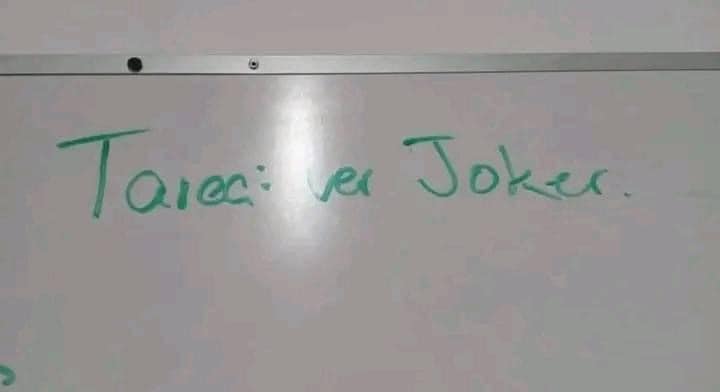 Tarea: ver Joker.